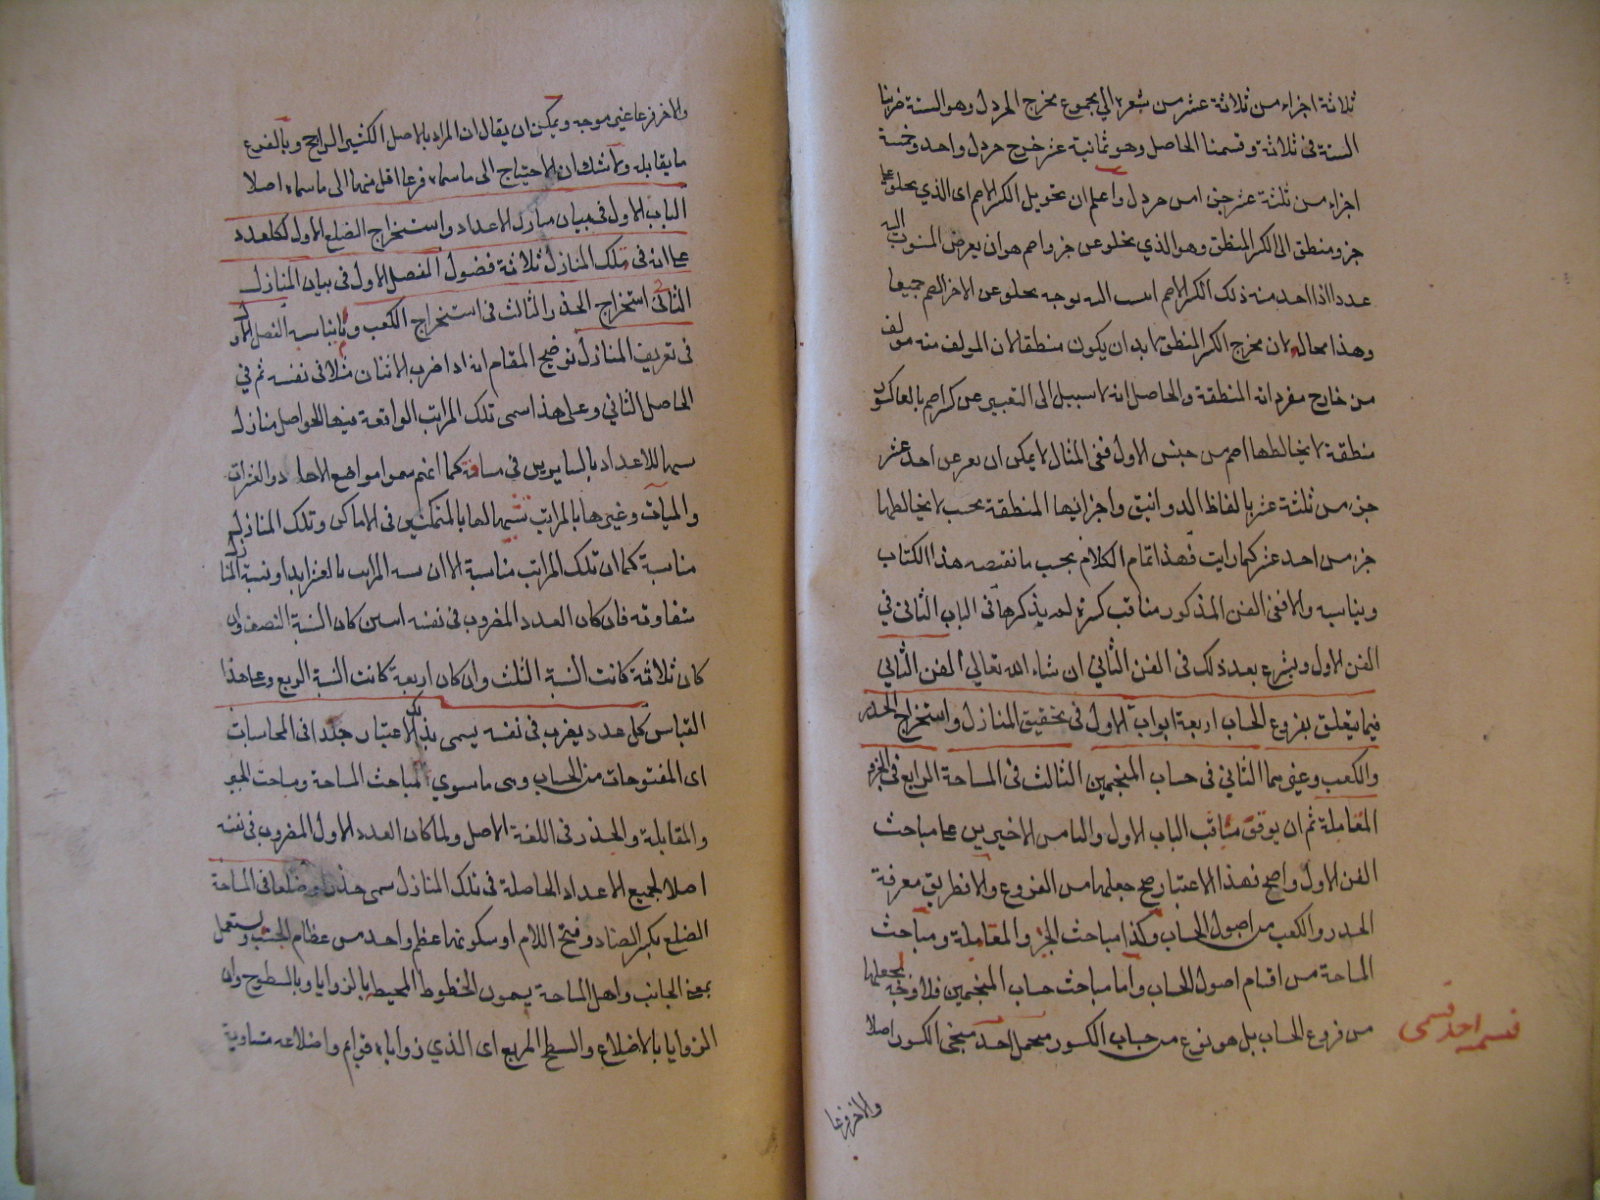 ثلاثة اجزاء من ثلاثة عشر من شعيرة الى مجموع مخرج الخردل وهو الستة ضربنا
الستة فى ثلاثة وقسمنا الحاصل وهو ثمانية عشر خرج خردل واحد وخمسة
اجزاء من ثلثة عشر جزءا من خردل واعلم ان تحويل الكسر الاصم اى الذي يخلو عن
جزو منطق الى الكسر المنطق وهو الذي يخلو عن جزو اصم هو ان يعرض المنسوب اليه
عددا اذا احد منه ذلك الكسر الاصم لا يخلو عن الاجزاء الصم جميعها
وهذا محال لان مخرج الكسر المنطق لا بد ان يكون منطقا لان المولف منه مولف
من مخارج مفرداته المنطقة والحاصل انه لا سبيل الى التعبير عن كسر اصم بالعا كسور
منطقة لا يخالطها اصم من جنس الاول ففى المثال لا يمكن ان يعبر عن احد عشر
جزء من ثلثة عشر بالفاظ الدوانيق واجزايها المنطقة بحسب لا يخالطها
جزء من احد عشر كما رايت فهذا تمام الكلام بحسب ما نقتصه هذا الكتاب
ويناسبه والا ففى الفن المذكور مناقب كثيرة لم يذكرها فى الباب الثانى في
الفن الاول ويشرع بعد ذلك فى الفن الثاني ان شاء الله تعالى الفن الثاني
فيما يتعلق بفروع الحساب اربعة ابواب الاول فى تحقيق المنازل واستخراج الجذر
والكعب وغيرهما الثاني فى حساب المنجمين الثالث فى المساحة الرابع فى الجبر و
المقابلة ثم ان يوقف مناقب الباب الاول والبابين الاخيرين على مباحث
الفن الاول واضح فبهذا الاعتبار صح جعلها من الفروع والا فطريق معرفة
الجذر والكعب من اصول الحساب وكذا مباحث الجبر والمقابلة ومباحث
المساحة من اقسام اصول الحساب واما مباحث حساب المنجمين فلا وجه لجعلها
من فروع الحساب بل هو نوع من حساب الكسور فجعل احد مبحثى الكسور اصلا
قسمه احد قسمى
والاخر فرعا
والاخر فرعا غير موجه ويمكن ان يقال ان المراد بالاصل الكثير الراجح وبالفرع
ما يقابله ولا شك ان الاحتياج الى ما سماه فرعا اقل منها الى ما سماه اصلا
الباب الاول فى بيان منازل الاعداد واستخراج الضلع الاول لكل عدد
على انه فى تلك المنازل ثلاثة فصول الفصل الاول فى بيان المنازل
الثانى استخراج الجذر الثالث فى استخراج الكعب وما يناسبه الفصل الاول
فى تعريف المنازل توضيح المقام انه اذا ضرب الاثنان مثلا فى نفسه ثم في
الحاصل الثاني وعلى هذا سمى تلك المراتب الواقعة فيها الحواصل منازل
تشبيها للاعداد بالسايرين فى مسافة كما انهم سموا مواضع الاحاد والعشرات
والميات وغيرها بالمراتب تشبيها لها بالمتمكنين فى الاماكن وتلك المنازل
متناسبة كما ان تلك المراتب متناسبة الا ان نسبة المراتب بالعشر ابدا ونسبة المنازل
متفاوتة فان كان العدد المضروب فى نفسه اثنين كان النسبة النصف وان
كان ثلاثة كانت النسبة الثلث وان كان اربعة كانت النسبة الربع وعلى هذا
القياس كل عدد يضرب فى نفسه يسمى بذلك الاعتبار جذرا فى المحاسبات
اى المفتوحات من الحساب وهى ما سوي المباحث المساحة ومباحث الجبر
والمقابلة والجذر فى اللغة الاصل ولما كان العدد الاول المضروب فى نفسه
اصلا لجميع الاعداد الحاصلة فى تلك المنازل سمى جذرا وضلعا فى المساحة
الضلع بكسر الضاد وفتح اللام او سكونها عظم واحد من عظام الجنب ويستعمل
بمعنى الجانب واهل المساحة يسمون الخطوط المحيطة بالزوايا وبالسطوح وان
الزوايا بالاضلاع والسطح المربع اى الذي زواياه قوايم واضلاعه متساوية